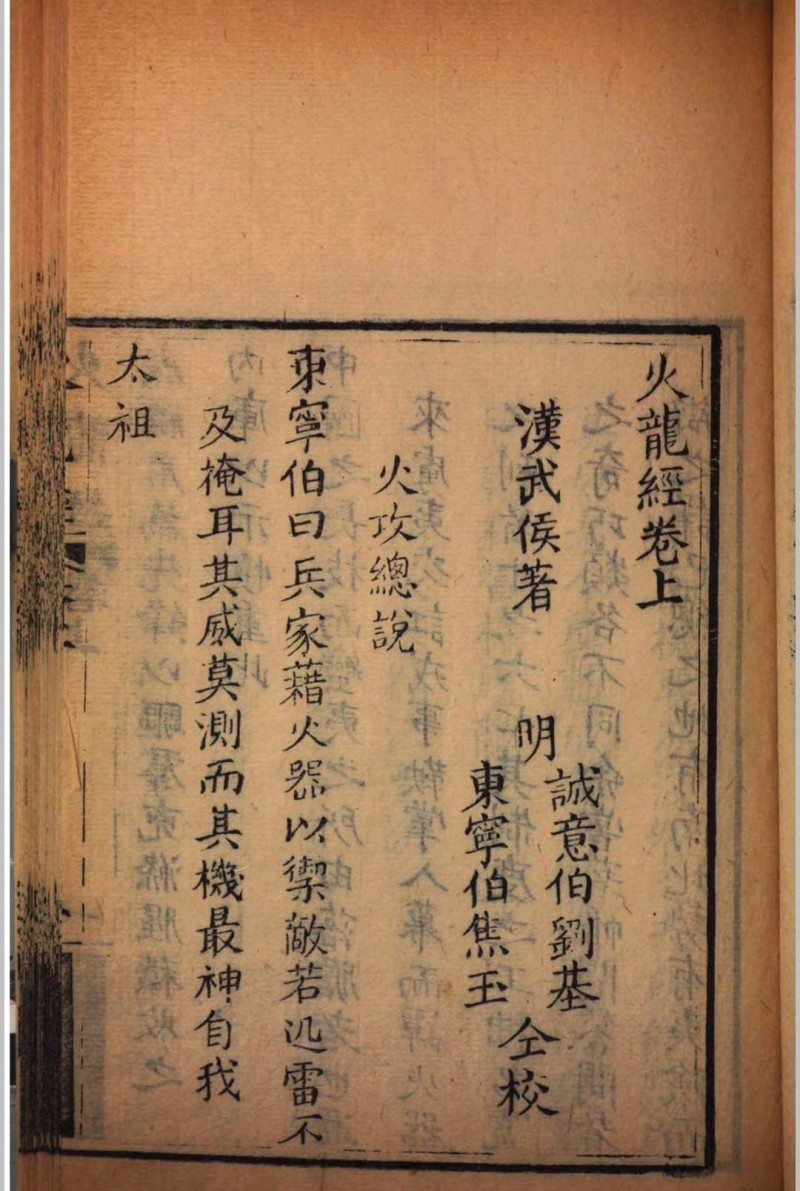 火龍經卷上
漢武侯著
明
誠意伯劉基
東寧伯焦玉
仝校
火攻總說
東寧伯曰兵家藉火器以禦敵若迅雷不
及掩耳其威莫測而其機最神自我
太祖